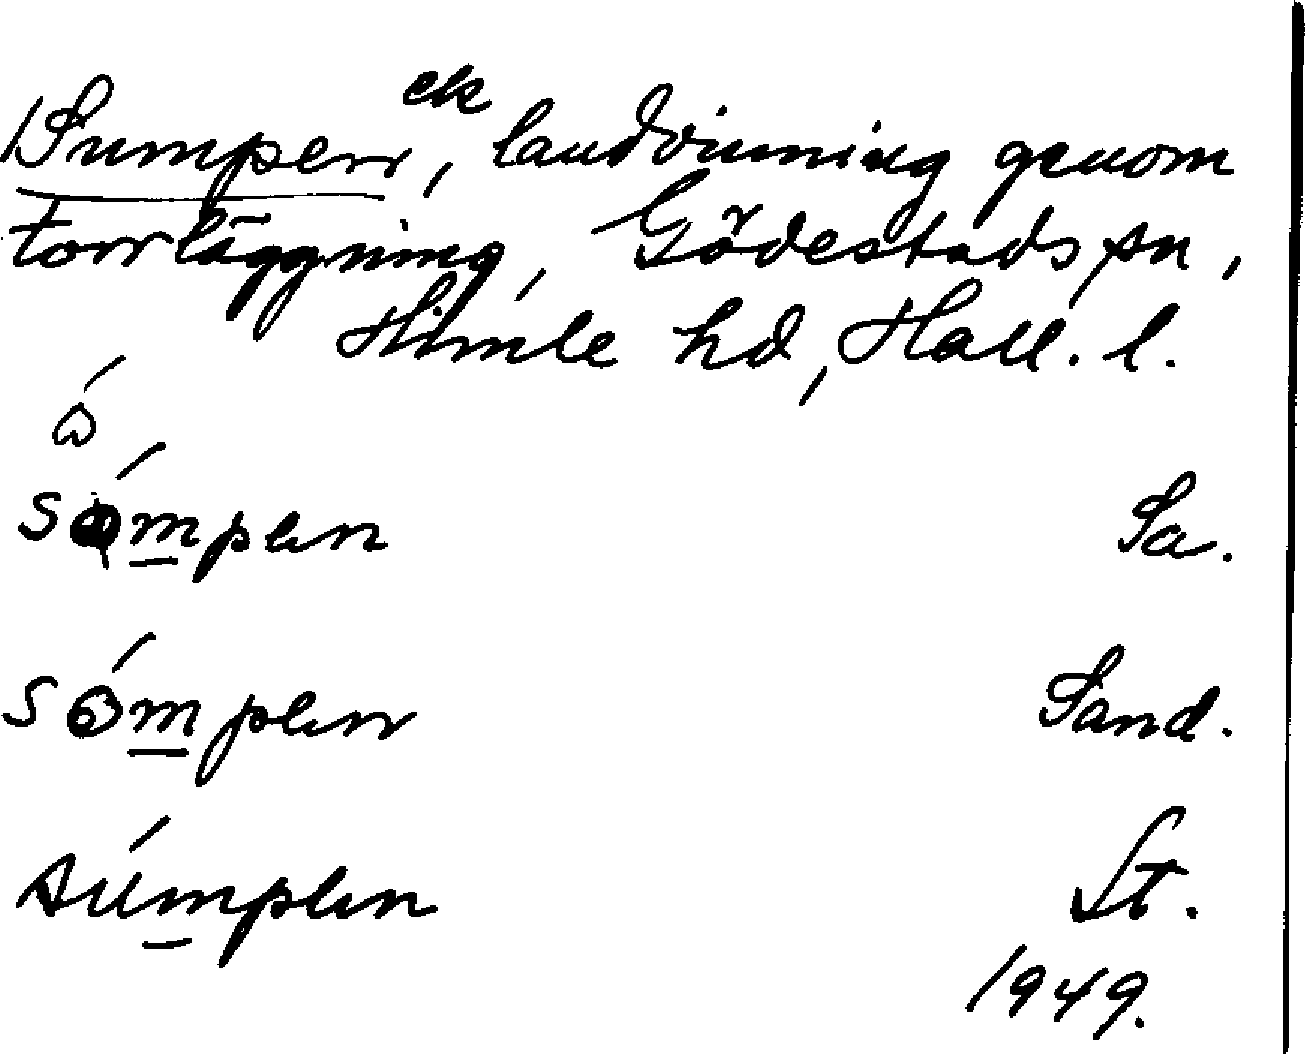 ek
Sumpen, landvinning genom
torrläggning, Gödestads sn,
Himle hd, Hall. l.
ó
sómpen Sa.
sómpen Sand.
súmpen St.
1949.